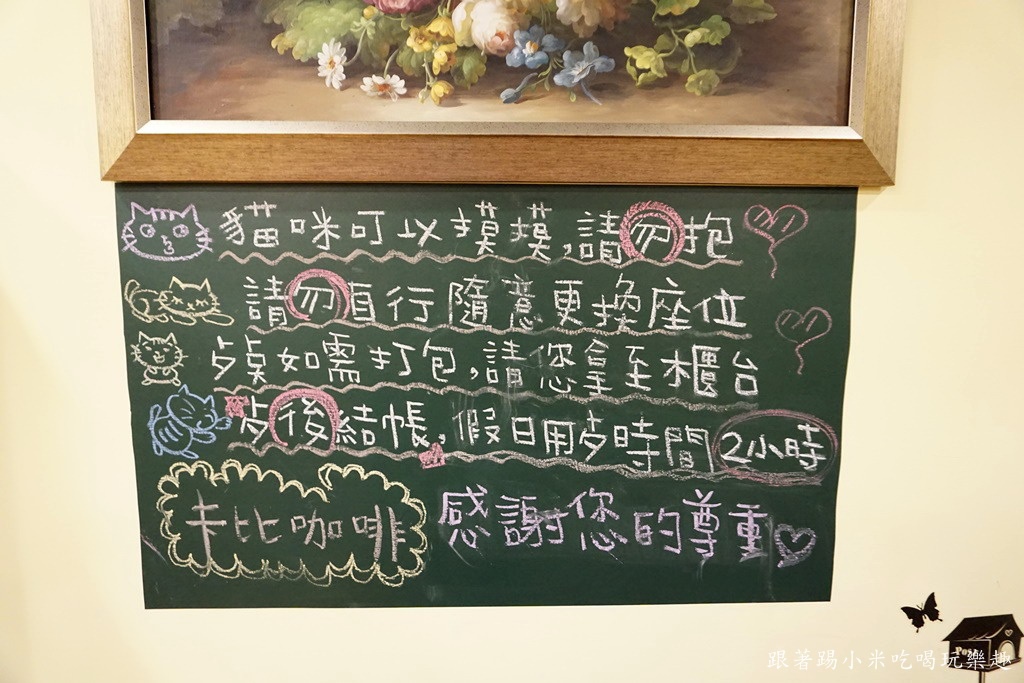 貓咪可以摸摸,請勿抱
請勿自行隨意更換座位
歺桌如需打包,請您拿至櫃台
歺後結帳,假日用歺時間2小時
卡比咖啡 感謝您的尊重
跟著踢小米吃喝玩樂趣